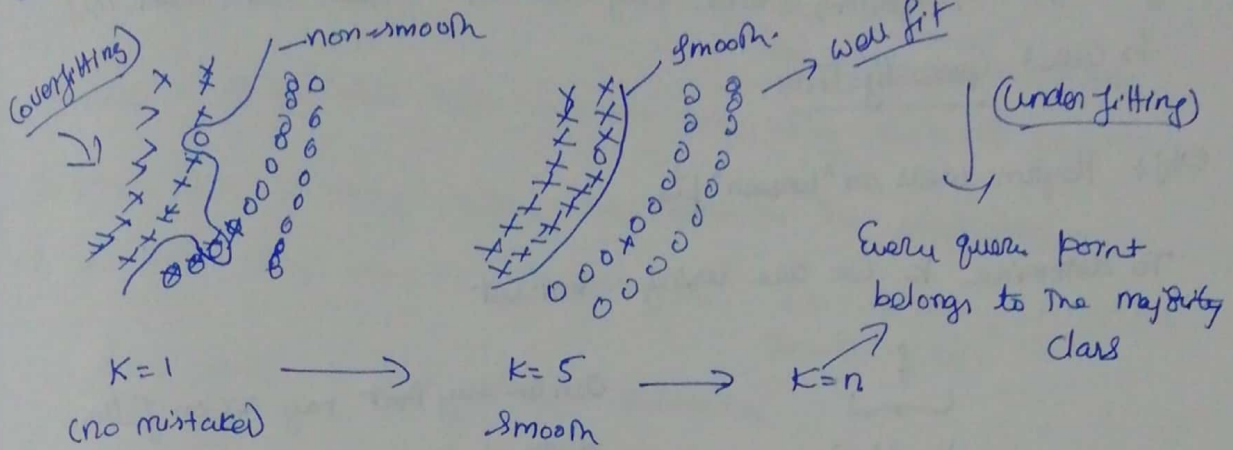 (overfitting)
non-smooth
smooth.
well fit
(under fitting)
Every query point
belongs to the majority
class
K=1
K=5
K=n
(no mistakes)
smooth